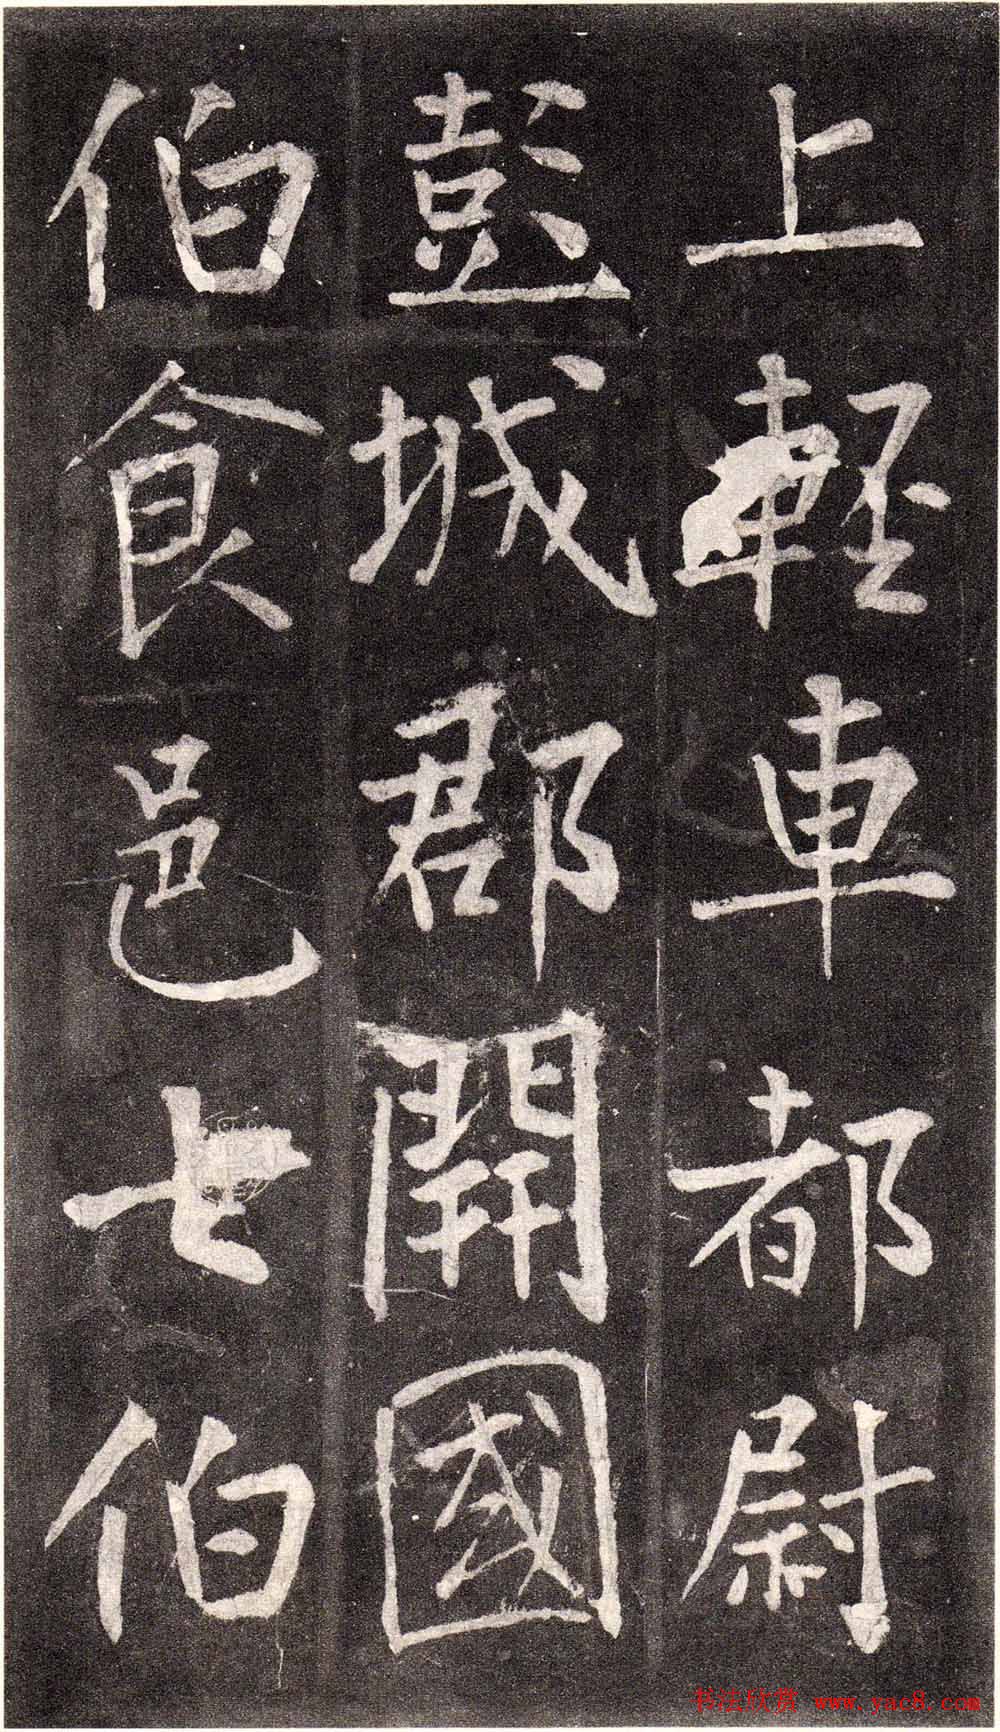 上輕車都尉
彭城郡開國
伯食邑七伯
书法欣赏 www.yac8.com